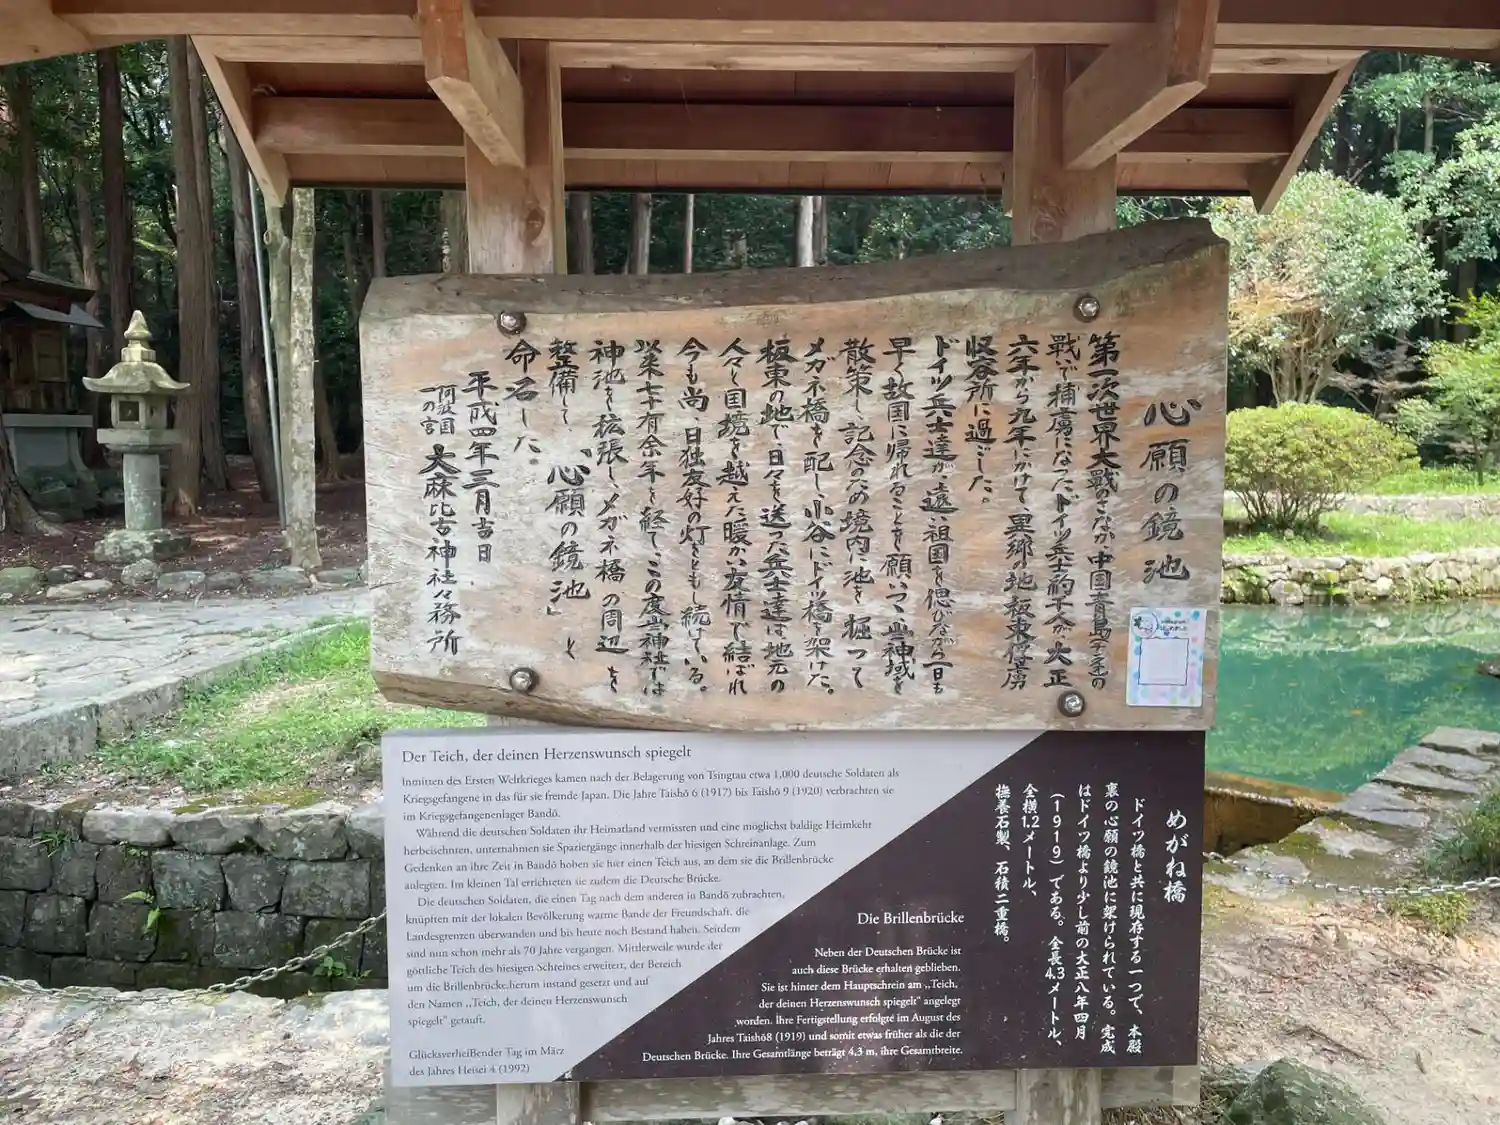 心願の鏡池
第一次世界大戦のさなか、中国青島(チンタオ)の
戦いで捕虜になったドイツ兵士約千人が、大正
六年から九年にかけて、異郷の地板東俘虜
収容所に過ごした。
ドイツ兵士達が、遠い祖国を偲びながら一日も
早く故国に帰れることを願いつつ、当神域を
散策し、記念のため境内に池を掘って
メガネ橋を配し、小谷にドイツ橋を架けた。
板東の地で日々を送った兵士達は、地元の
人々と国境を越えた暖かい友情で結ばれ
今も尚日独友好の灯をともし続けている。
以来七十有余年を経て、この度当神社では
神池を拡張し、メガネ橋の周辺を
整備して、「心願の鏡池」と
命名した。
平成四年三月吉日
阿波国
一の宮
大麻比古神社々務所
Der Teich, der deinen Herzenswunsch spiegelt
Inmitten des Ersten Weltkrieges kamen nach der Belagerung von Tsingtau etwa 1,000 deutsche Soldaten als
Kriegsgefangene in das für sie fremde Japan. Die Jahre Taishō 6 (1917) bis Taishō 9 (1920) verbrachten sie
im Kriegsgefangenenlager Bandō.
Während die deutschen Soldaten ihr Heimatland vermissten und eine möglichst baldige Heimkehr
herbeisehnten, unternahmen sie Spaziergänge innerhalb der hiesigen Schreinanlage. Zum
Gedenken an ihre Zeit in Bandō hoben sie hier einen Teich aus, an dem sie die Brillenbrücke
anlegten. Im kleinen Tal errichteten sie zudem die Deutsche Brücke.
Die deutschen Soldaten, die einen Tag nach dem anderen in Bandō zubrachten,
knüpften mit der lokalen Bevölkerung warme Bande der Freundschaft, die
Landesgrenzen überwanden und bis heute noch Bestand haben. Seirdem
sind nun schon mehr als 70 Jahre vergangen. Mittlerweile wurde der
göttliche Teich des hiesigen Schreines erweitert, der Bereich
um die Brillenbrücke herum instand gesetzt und auf
den Namen „Teich, der deinen Herzenswunsch
spiegelt" getauft.
Glücksverheißender Tag im März
des Jahres Heisei 4 (1992)
Die Brillenbrücke
Neben der Deutschen Brücke ist
auch diese Brücke erhalten geblieben.
Sie ist hinter dem Hauptschrein am „Teich,
der deinen Herzenswunsch spiegelt" angelegt
worden. Ihre Fertigstellung erfolgte im August des
Jahres Taishō8 (1919) und somit etwas früher als die der
Deutschen Brücke. Ihre Gesamtlänge beträgt 4,3 m, ihre Gesamtbreite.
めがね橋
ドイツ橋と共に現存する一つで、本殿
裏の心願の鏡池に架けられている。完成
はドイツ橋より少し前の大正八年四月
(1919)である。全長4.3メートル、
全横1.2メートル、
撫養石製、石積二重橋。